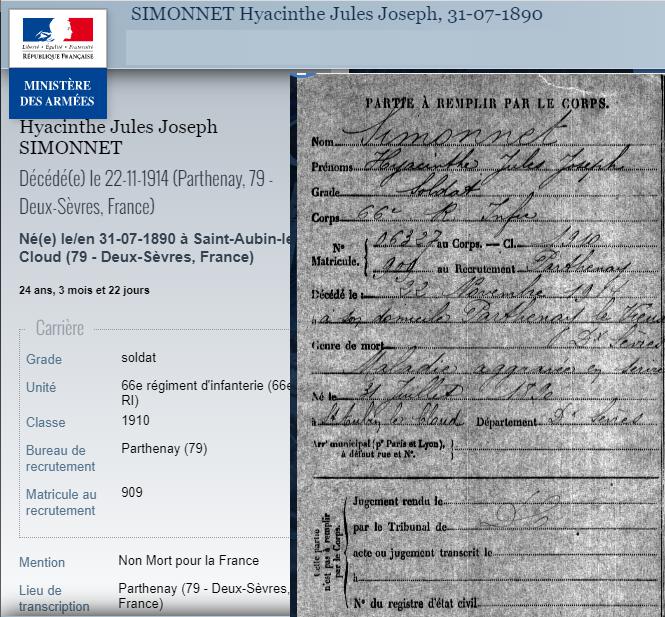 SIMONNET Hyacinthe Jules Joseph, 31-07-1890
Liberté • Égalité • Fraternité
RÉPUBLIQUE FRANÇAISE
MINISTÈRE
DES ARMÉES
Hyacinthe Jules Joseph
SIMONNET
Décédé(e) le 22-11-1914 (Parthenay, 79 -
Deux-Sèvres, France)
Né(e) le/en 31-07-1890 à Saint-Aubin-le
Cloud (79 - Deux-Sèvres, France)
24 ans, 3 mois et 22 jours
Carrière
Grade soldat
Unité 66e régiment d'infanterie (66e
RI)
Classe 1910
Bureau de Parthenay (79)
recrutement
Matricule au 909
recrutement
Mention Non Mort pour la France
Lieu de Parthenay (79 - Deux-Sèvres,
transcription France)
PARTIE À REMPLIR PAR LE CORPS.
Nom Simonnet
Prénoms Hyacinthe Jules Joseph
Grade soldat
Corps 66e R Infie
Nº Matricule. 06327 au Corps. — Cl. 1910
909 au Recrutement Parthenay
Décédé le 22 Novembre 1914
à son domicile Parthenay le Vieux
Dx Sèvres
Genre de mort
Maladie aggravée en service
Né le 31 Juillet 1890
à St Aubin le Cloud Département Dx Sèvres
Arrt municipal (pr Paris et Lyon),
à défaut rue et Nº.
Cette partie
n'est pas à remplir
par le Corps.
Jugement rendu le
par le Tribunal de
acte ou jugement transcrit le
à
Nº du registre d'état civil